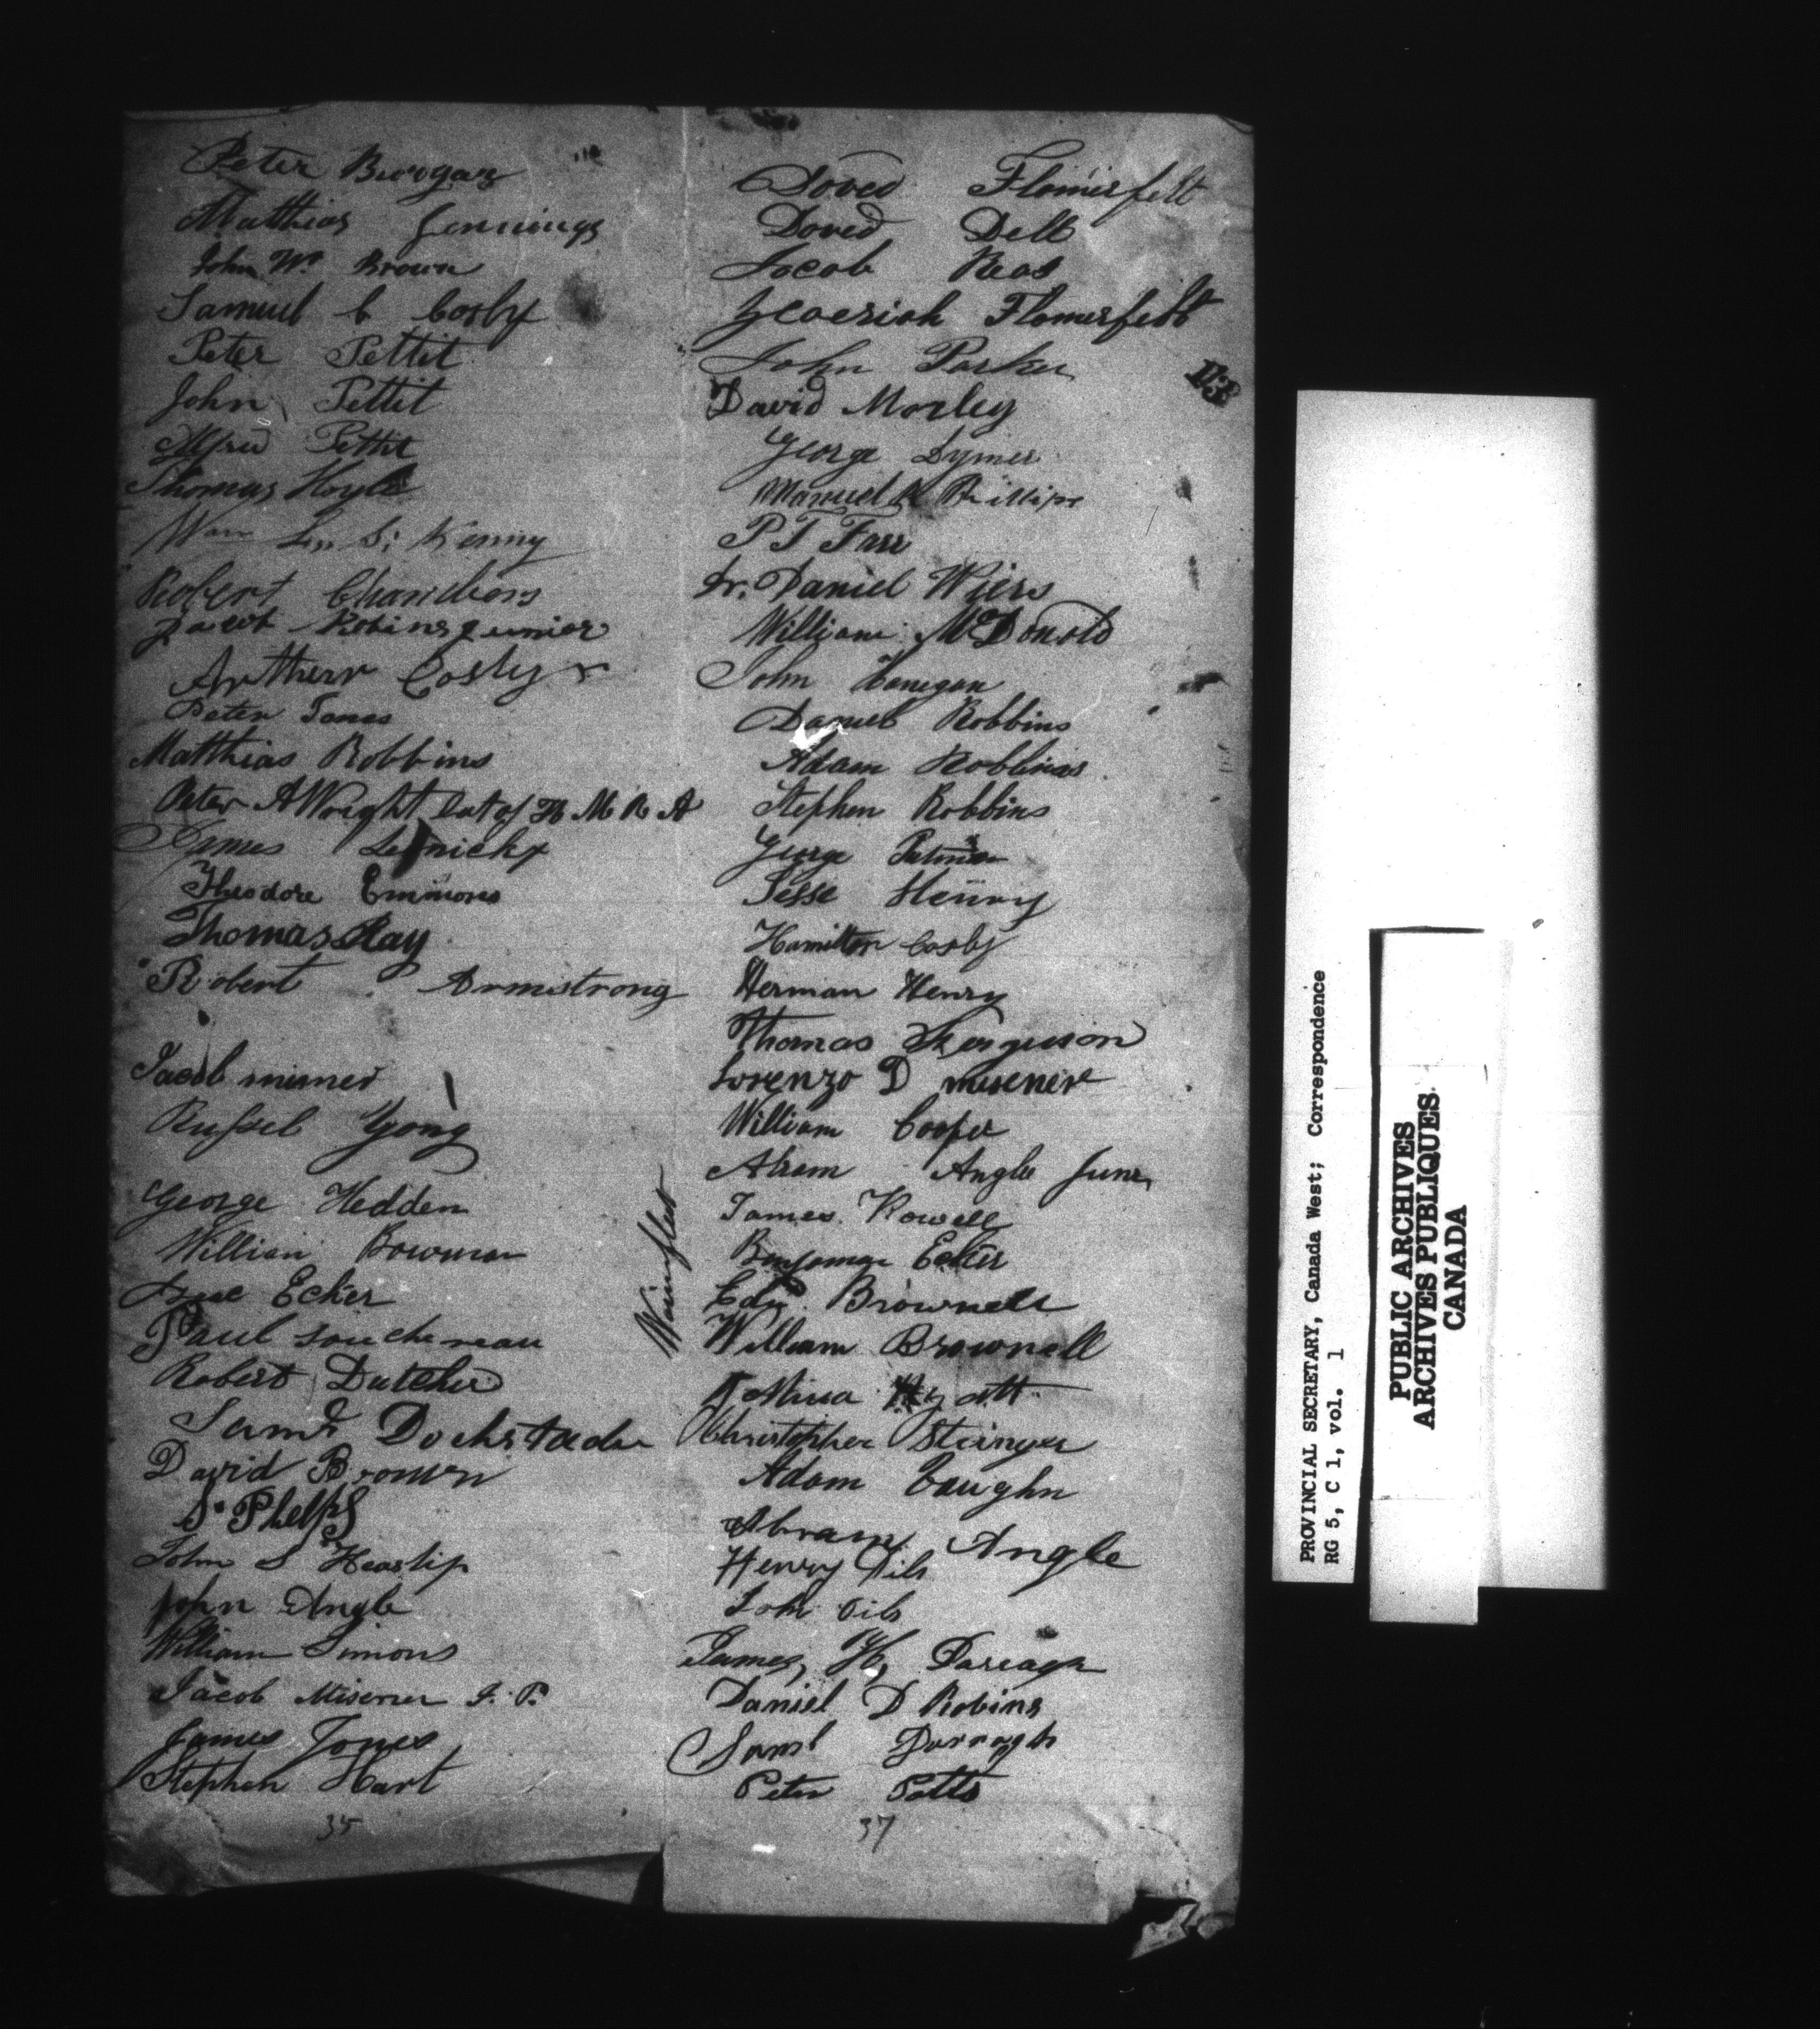 Peter
Matthias Jennings
John Wm Brown
Samuel C Cosby
Peter Pettit
John Pettit
Alfred Pettit
Thomas Hoyle
Wm L. S. Kenny
Robert Chambers
Jacob Robins Junior
Artherr Cosby
Peter Jones
Matthias Robbins
Peter A Wright Lat of H M R A
James
Theodore Emmons
Thomas Ray
Robert Armstrong
Jacob misner
Russel Yong
George Hedden
William Bowman
Ecker
Paul
Robert Dutcher
Saml Dochstader
David Brown
S. Phelps
John S Heaslip
John Angle
William Simons
Jacob Misener J. P.
James Jones
Stephen Hart
35
Wainfleet
Doved Flomerfelt
Doved Dell
Jacob
Flomerfelt
John Parker
David Morley
George Dymer
Manuel Phillips
P T Farr
Daniel Wiers
William McDonold
John
Daniel Robbins
Adam Robbins
Stephen Robbins
George
Jesse Henry
Hamilton Cosby
Herman Henry
Thomas Ferguson
Lorenzo D misener
William Cooper
Abram Angle Junr
James Rowell
Ecker
Brownell
William Brownell
Hyatt
Christopher Stringer
Adam Vaughn
Abram Angle
Henry Dils
John Dils
James, H,
Daniel D Robins
Saml Darragh
Peter Potts
37
113
PROVINCIAL SECRETARY, Canada West; Correspondence
RG 5, C 1, vol. 1
PUBLIC ARCHIVES
ARCHIVES PUBLIQUES
CANADA